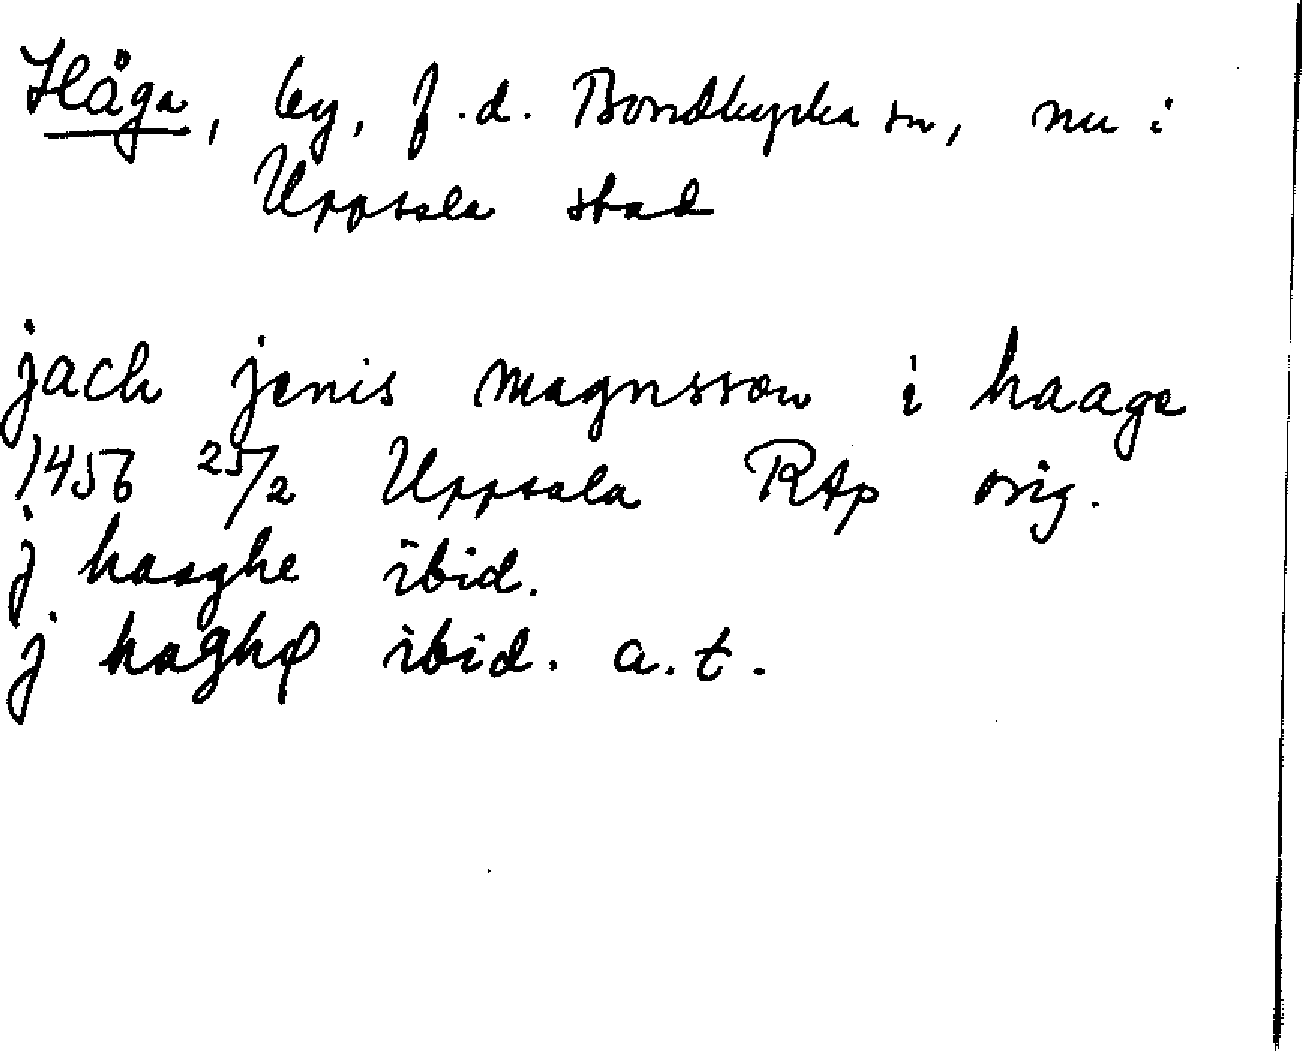 Håga, by, f.d. Bondkyrka sn, nu i
Uppsala stad
jach jenis magnsson i haage
1456 25/2 Uppsala RAp orig.
j haaghe ibid.
j haghø ibid. a.t.